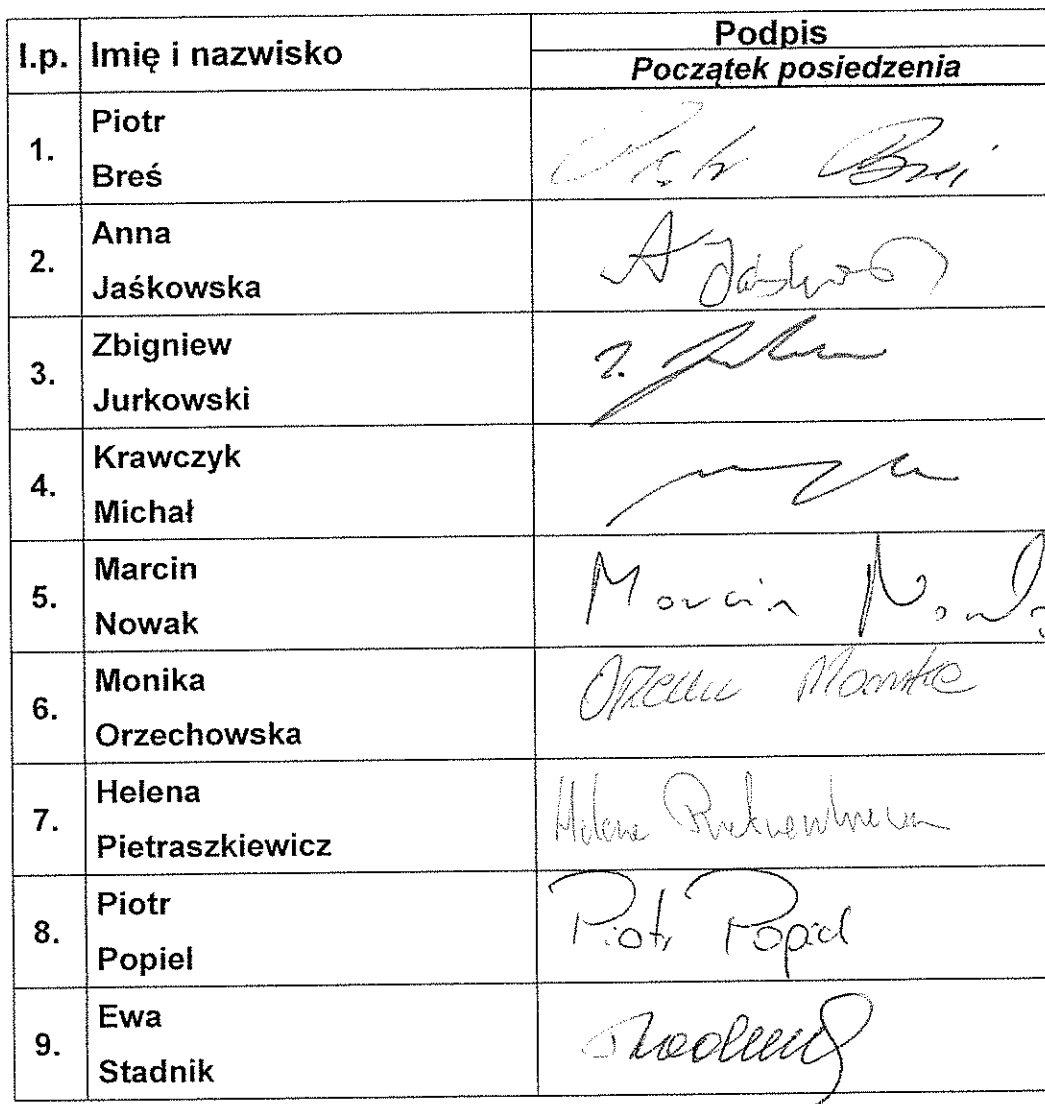 l.p. Imię i nazwisko Podpis
Początek posiedzenia
1. Piotr
Breś
Piotr Breś
2. Anna
Jaśkowska
A Jaśkows
3. Zbigniew
Jurkowski
4. Krawczyk
Michał
5. Marcin
Nowak
Marcin Nowak
6. Monika
Orzechowska
7. Helena
Pietraszkiewicz
Helena Pietraszkiewicz
8. Piotr
Popiel
Piotr Popiel
9. Ewa
Stadnik